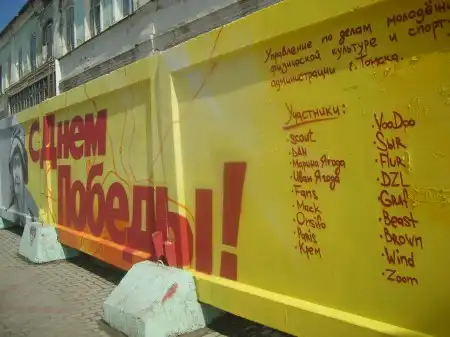 с Днем
Победы!
Управление по делам молодёжи
физической культуре и спорту
администрации г. Томска.
Участники:
·Scout
·DAN
·Марина Ягода
·Иван Ягода
·Fans
·Mack
·Paris
·Крем
·VooDoo
·Sur
·Flur
·DZL
·Beast
·Brown
·Wind
·Zoom